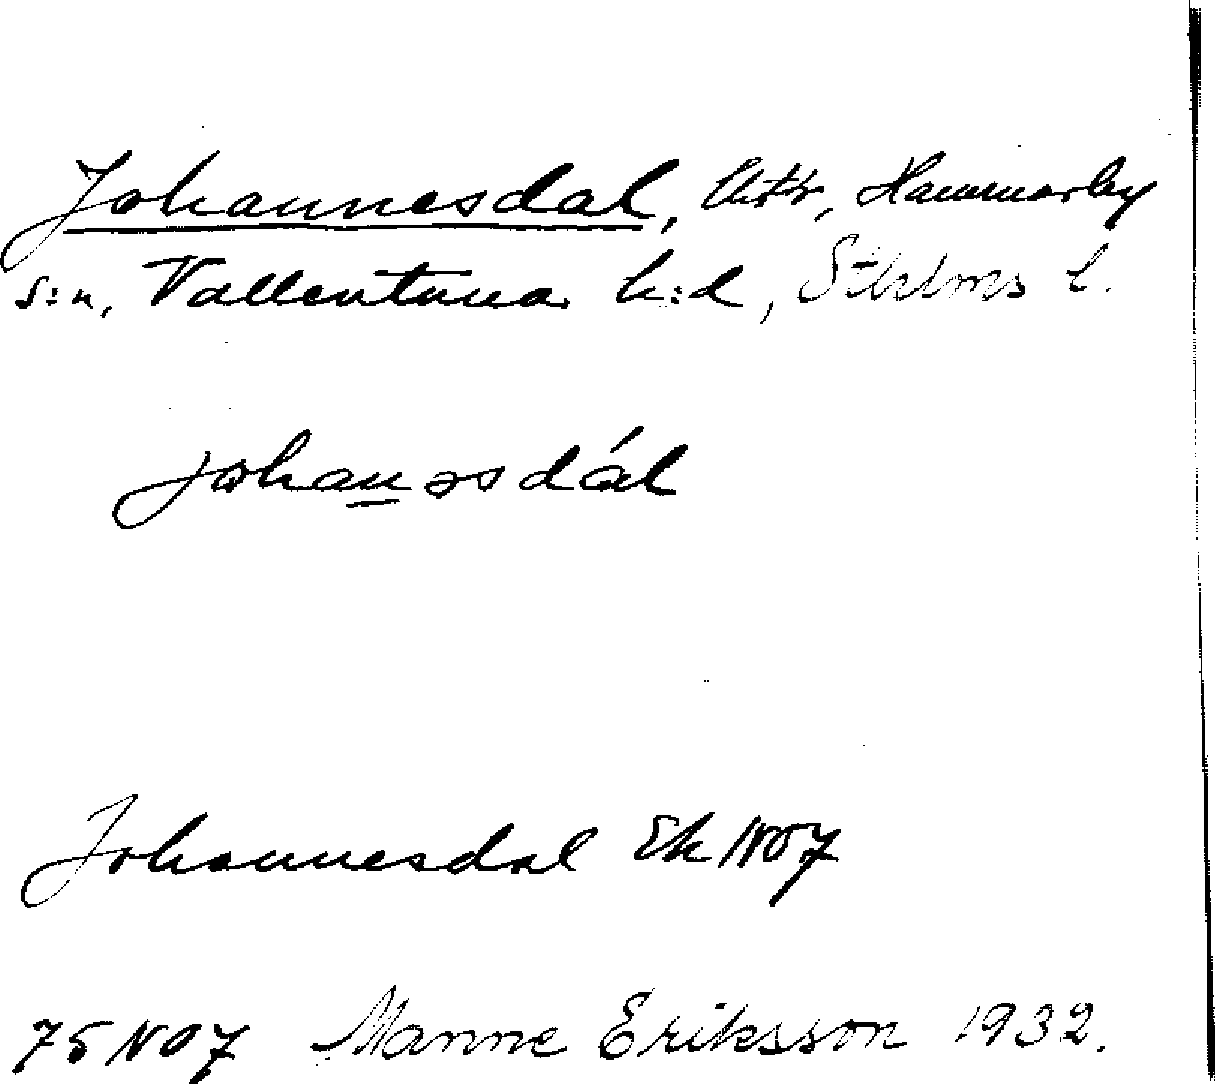 Johannesdal, Hammarby
s:n, Vallentuna h:d, Sthlms l.
johanəsdál
Johannesdal Ek NO7
75 NO7 Manne Eriksson 1932.